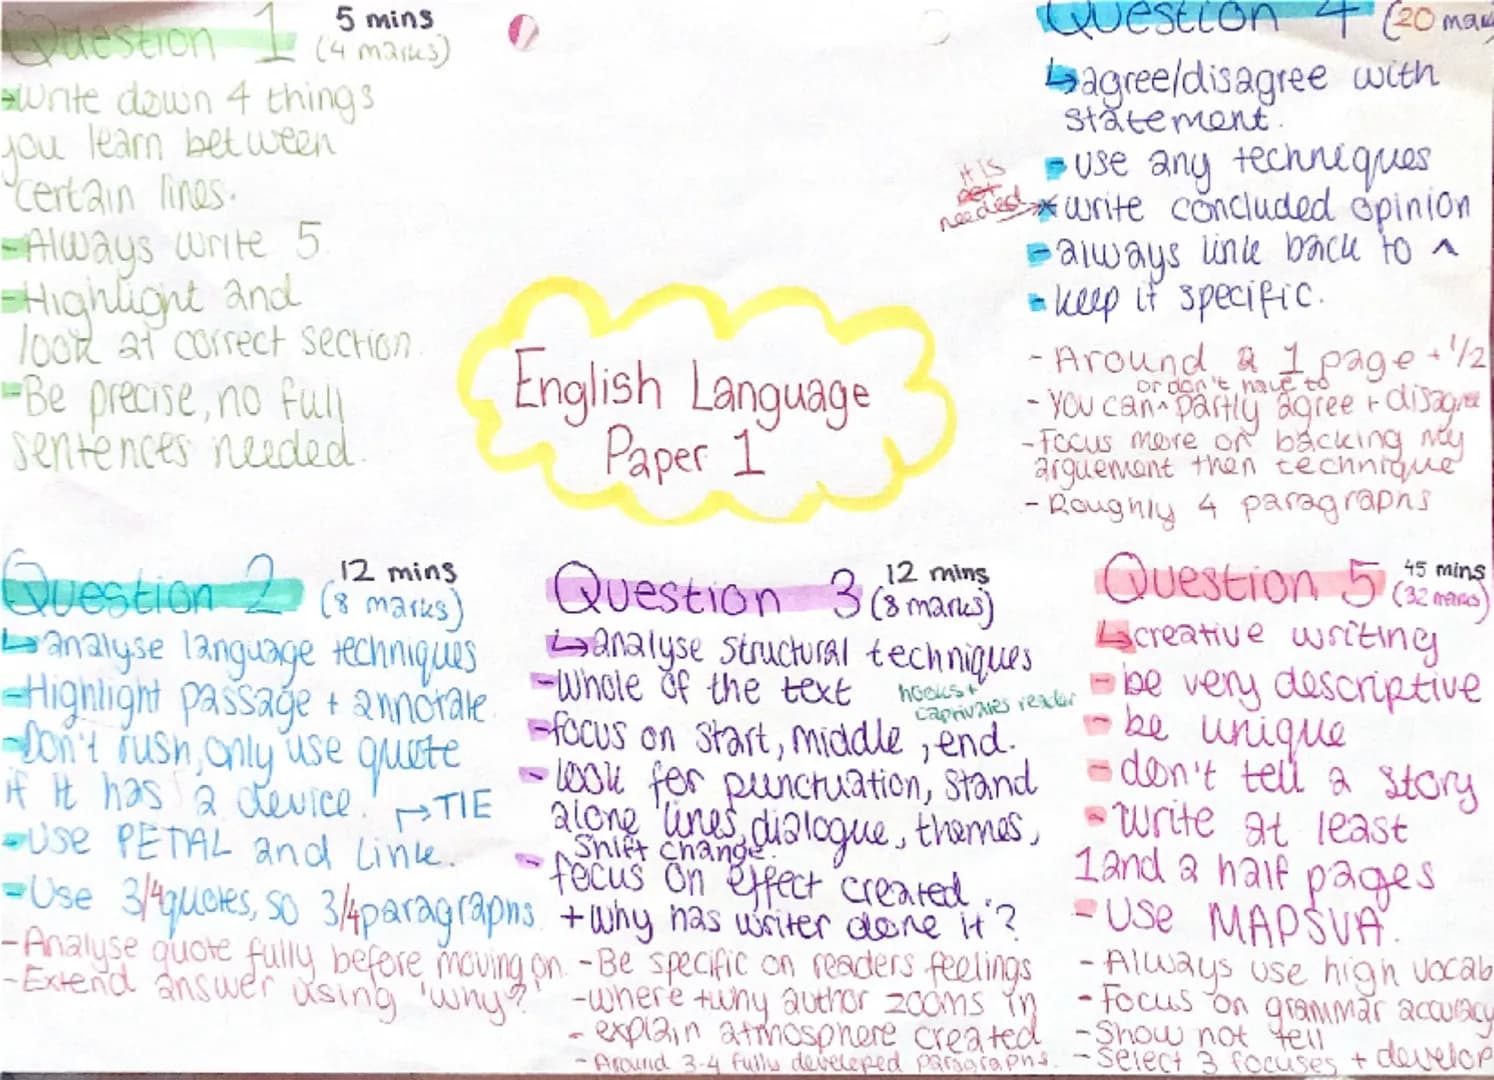 English Language
Paper 1
Question 1 5 mins
(4 marks)
→write down 4 things
you learn between
certain lines.
-Always write 5.
-Highlight and
look at correct section.
-Be precise, no full
sentences needed.
Question 2 12 mins
(8 marks)
↳analyse language techniques
-Highlight passage + annotate.
-Don't rush, only use quote
if it has a device. ↱TIE
-Use PETAL and Link.
-Use 3/4quotes, so 3/4paragraphs.
-Analyse quote fully before moving on.
-Extend answer using 'why?'
Question 3 12 mins
(8 marks)
↳analyse structural techniques
-whole of the text
hooks +
captivates reader
-focus on start, middle, end.
- look for punctuation, stand
alone lines, dialogue, themes,
shift change.
- focus on effect created.
+why has writer done it?
-Be specific on readers feelings
-where +why author zooms in
- explain atmosphere created
- Around 3-4 fully developed paragraphs.
Question 4 (20 mar
↳agree/disagree with
statement.
- use any techniques
it is
not
needed →
* write concluded opinion
-always link back to ^
- keep it specific.
- Around a 1 page + 1/2
or don't have to
- You can ^ partly agree + disagree
-Focus more on backing my
arguement then technique
- Roughly 4 paragraphs
Question 5 45 mins
(32 marks)
↳creative writing
- be very descriptive
- be unique
- don't tell a story
- Write at least
1 and a half pages
- Use MAPSVA.
- Always use high vocab
- Focus on grammar accuracy
- Show not tell
- Select 3 focuses + develop